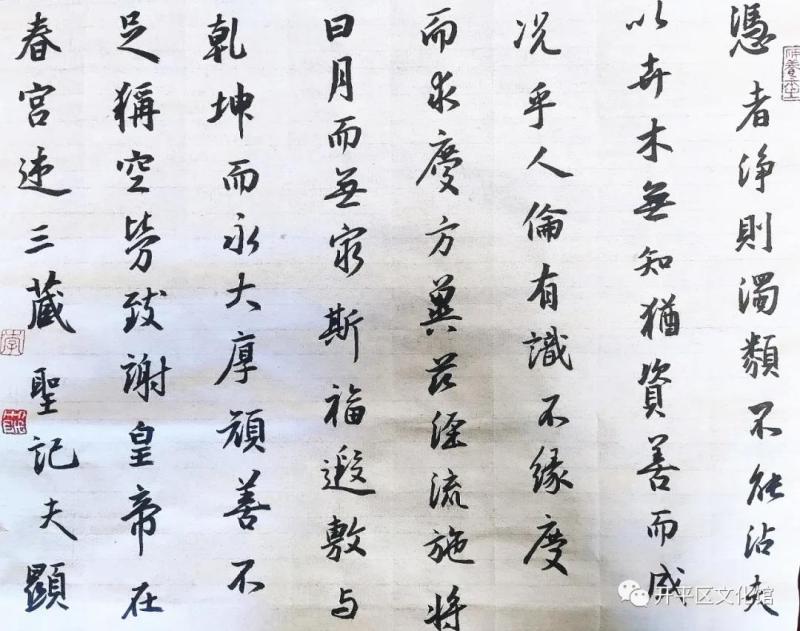 憑者淨則濁類不能沾夫
以卉木無知猶資善而成
况乎人倫有識不緣度
而求慶方冀茲經流施將
日月而無窮斯福遐敷与
乾坤而永大厚頑善不
足稱空勞致謝皇帝在
春宮述三藏聖記夫顯
开平区文化馆